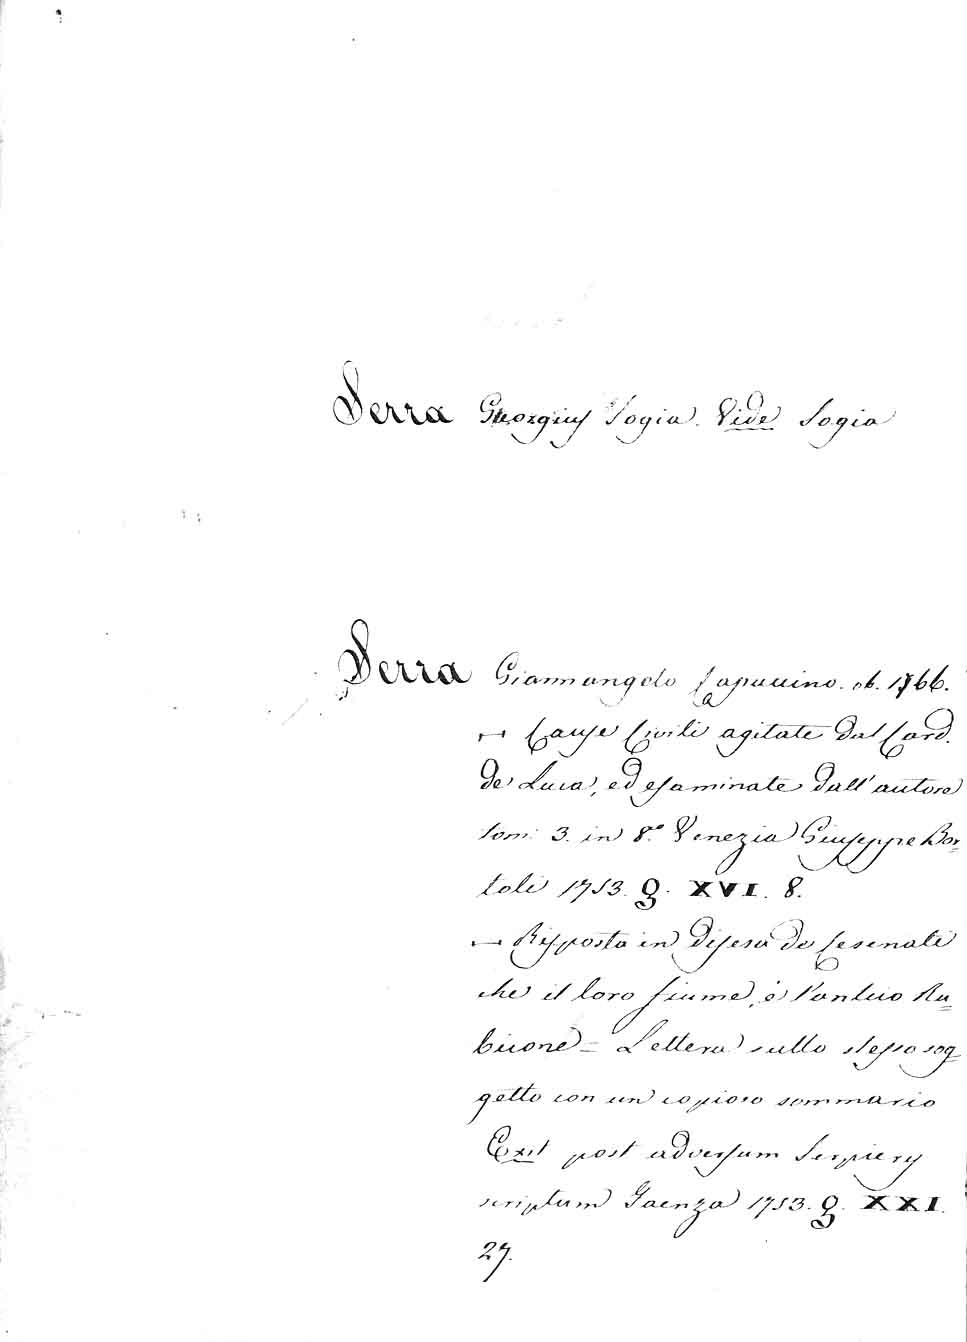 Serra Georgius Sogia. Vide Sogia
Serra Giannangelo Capuccino. ob. 1766.
— Cause Civili agitate dal Card.
de Luca, ed esaminate dall'autore
tom: 3. in 8.° Venezia Giuseppe Bor=
toli 1753. Q. XVI. 8.
— Risposta in difesa de Cesenati
che il loro fiume, è l'antico Ru=
bicone = Lettera sullo stesso sog=
getto con un copioso sommario
Exit post adversum Serpierÿ
scriptum Faenza 1753. Q. XXI.
27.